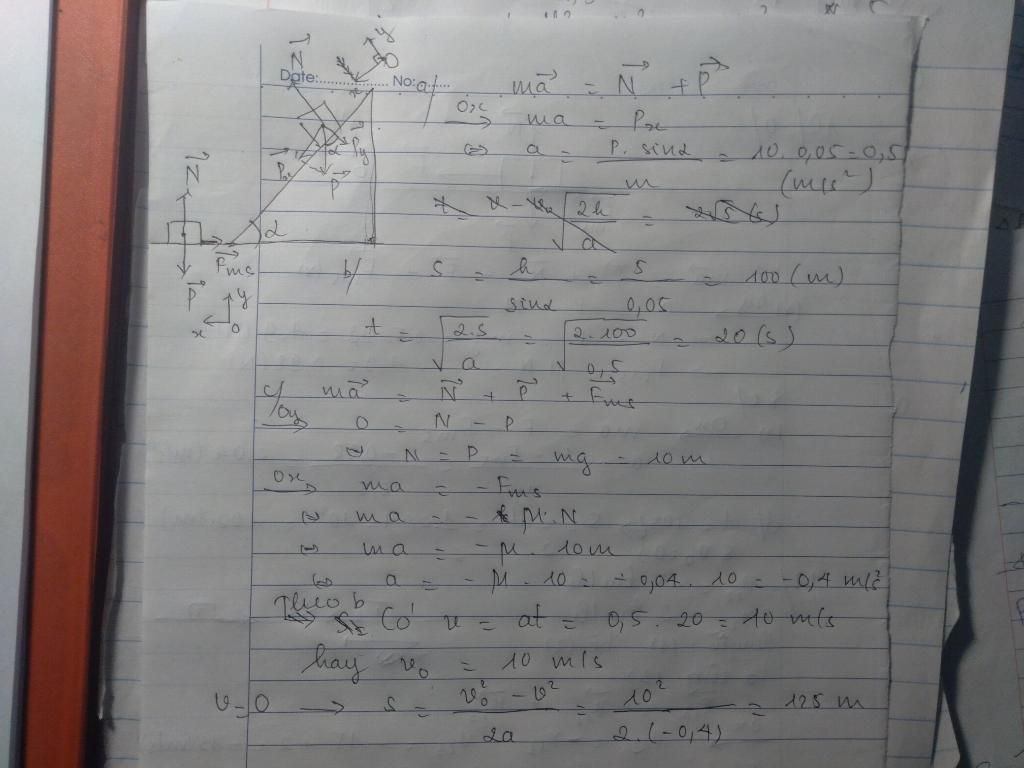 Date: No:
a/ ma⃗ = N⃗ + P⃗
Ox → ma = Px
⇔ a = P. sinα / m = 10. 0,05 = 0,5 (m/s²)
b/ s = h / sinα = 5 / 0,05 = 100 (m)
t = √(2.s / a) = √(2.100 / 0,5) = 20 (s)
c/ ma⃗ = N⃗ + P⃗ + F⃗ms
Oy → 0 = N - P
⇔ N = P = mg = 10m
Ox → ma = -Fms
⇔ ma = - μ.N
⇔ ma = -μ. 10m
⇔ a = -μ. 10 = -0,04. 10 = -0,4 m/s²
Theo b Có v = at = 0,5. 20 = 10 m/s
hay v₀ = 10 m/s
v=0 → s = v₀² - v² / 2a = 10² / 2.(-0,4) = 125 m
y
O
N⃗
Py
Px
P⃗
N⃗
α
F⃗ms
P⃗
y
x O